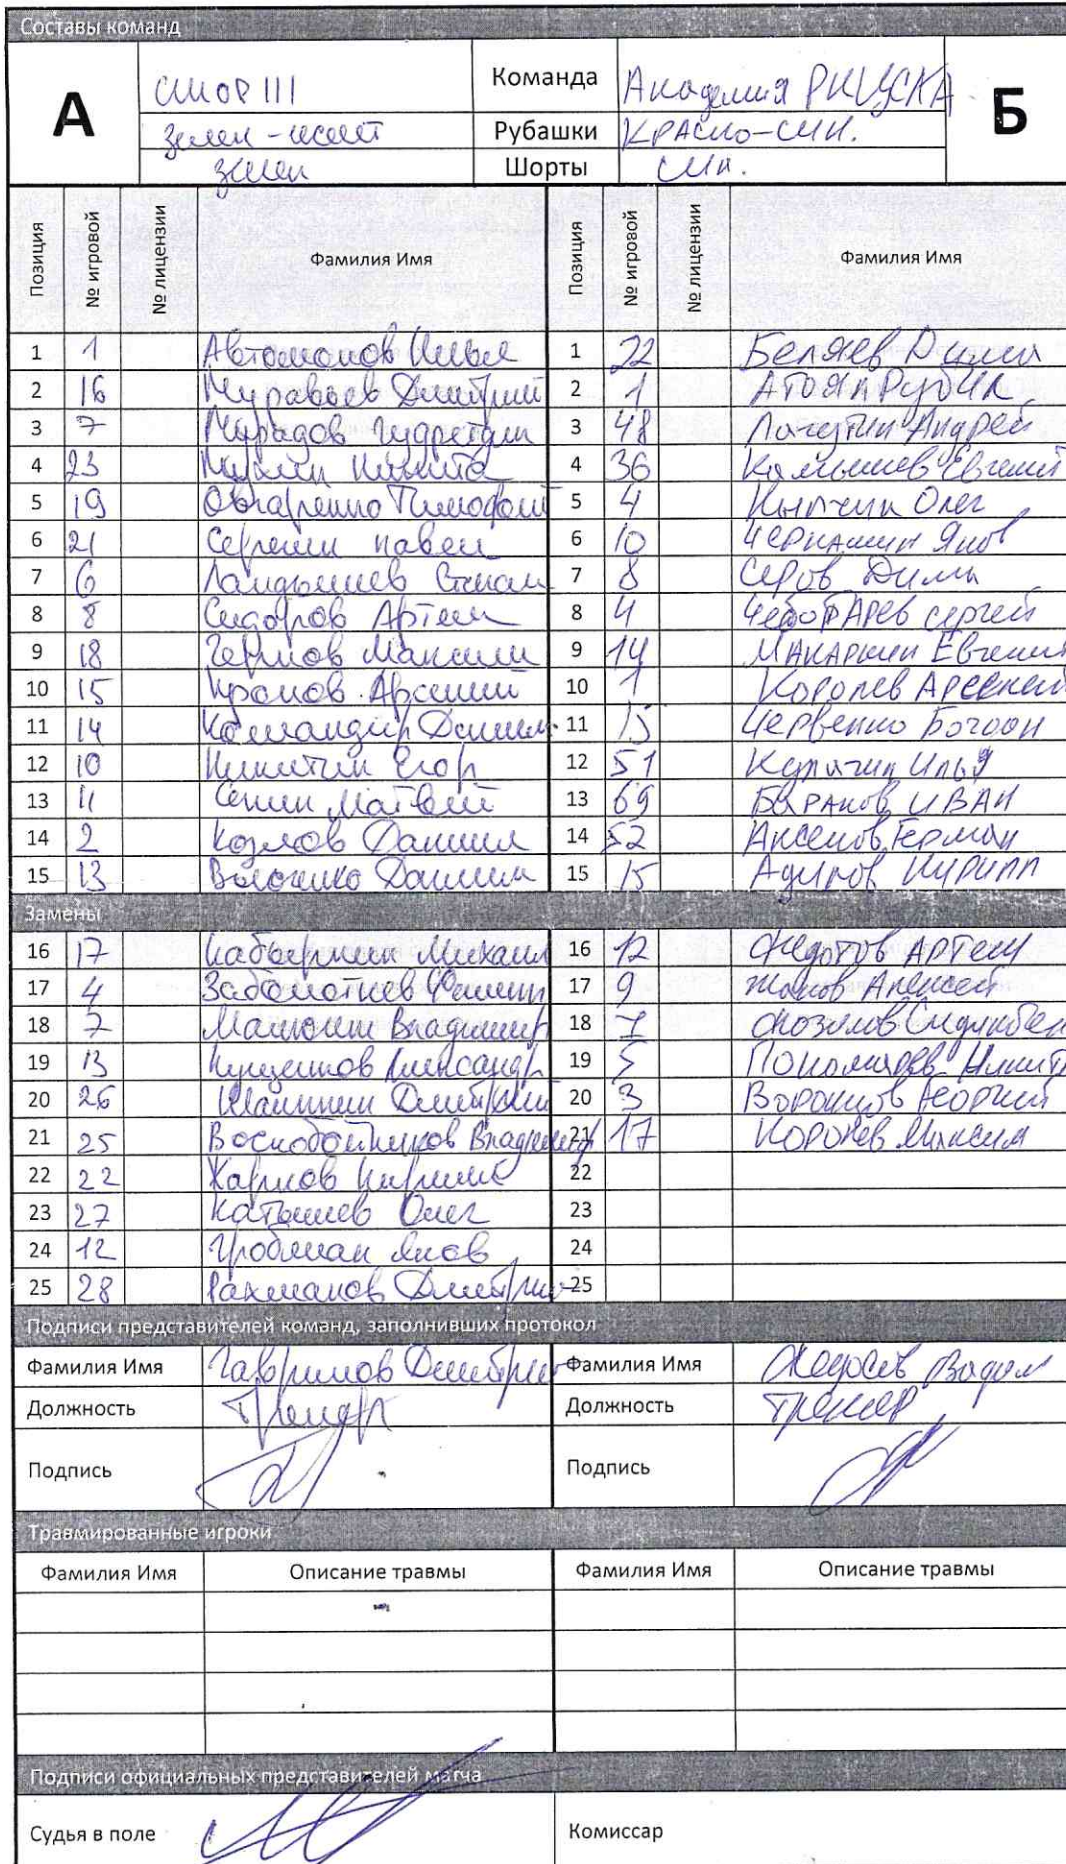 Составы команд
А Команда Академия РК ЦСКА Б
зелен - Рубашки КРАСНО-СИН.
зелен Шорты Син.
Позиция № игровой № лицензии Фамилия Имя Позиция № игровой № лицензии Фамилия Имя
1 1 Автомонов Илья 1 22 Беляев Дима
2 16 Муравьев Дмитрий 2 1 АТОЯН РУБИК
3 7 Мурадов 3 48 Андрей
4 23 Мухин Никита 4 36 Камышев Евгений
5 19 Овчаренко Тимофей 5 4 Олег
6 21 Сергеши Павел 6 10 Яков
7 6 Ландышев Степан 7 8 Серов Дима
8 8 Сидоров Артем 8 4 ЧеботАРев Сергей
9 18 Максим 9 14 МАКАРкин Евгений
10 15 Арсений 10 1 Королев Арсений
11 14 Командир Даниил 11 15 Червенко Богдан
12 10 Никитин Егор 12 51 Илья
13 11 Сенин Матвей 13 69 БаРАнов ИВАН
14 2 Козлов Даниил 14 52 Аксенов Герман
15 13 Даниил 15 15 Кирилл
Замены
16 17 Михаил 16 12 Федотов АРТем
17 4 17 9 Алексей
18 7 Владимир 18 7
19 13 Александр 19 5 Пономарев
20 26 Дмитрий 20 3 Георгий
21 25 Воскобойников Владимир 21 17 Королев Максим
22 22 Карпов Кирилл 22
23 27 Катышев Олег 23
24 12 Яков 24
25 28 Рахманов Дмитрий 25
Подписи представителей команд, заполнивших протокол
Фамилия Имя Гаврилов Дмитрий Фамилия Имя Вадим
Должность Тренер Должность Тренер
Подпись Подпись
Травмированные игроки
Фамилия Имя Описание травмы Фамилия Имя Описание травмы
Подписи официальных представителей матча
Судья в поле Комиссар